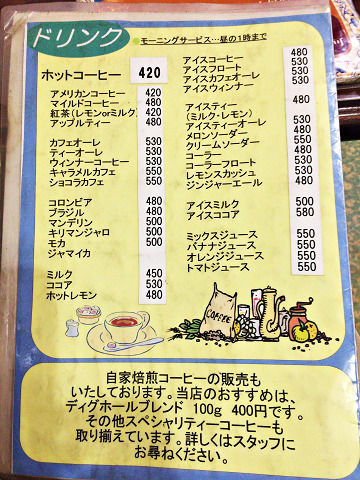 ドリンク
●モーニングサービス…昼の1時まで
ホットコーヒー 420
アメリカンコーヒー 420
マイルドコーヒー 480
紅茶(レモンorミルク) 420
アップルティー 480
カフェオーレ 530
ティーオーレ 530
ウィンナーコーヒー 530
キャラメルカフェ 550
ショコラカフェ 550
コロンビア 480
ブラジル 500
マンデリン 500
キリマンジャロ 500
モカ 500
ジャマイカ
ミルク 450
ココア 530
ホットレモン 480
アイスコーヒー 480
アイスフロート 530
アイスカフェオーレ 530
アイスウィンナー 530
アイスティー 480
(ミルク・レモン)
アイスティーオーレ 530
メロンソーダー 480
クリームソーダー 530
コーラー 480
コーラーフロート 530
レモンスカッシュ 530
ジンジャーエール 480
アイスミルク 500
アイスココア 580
ミックスジュース 550
バナナジュース 550
オレンジジュース 550
トマトジュース 550
COFFEE
自家焙煎コーヒーの販売も
いたしております。当店のおすすめは、
ディグホールブレンド 100g 400円です。
その他スペシャリティーコーヒーも
取り揃えています。詳しくはスタッフに
お尋ねください。